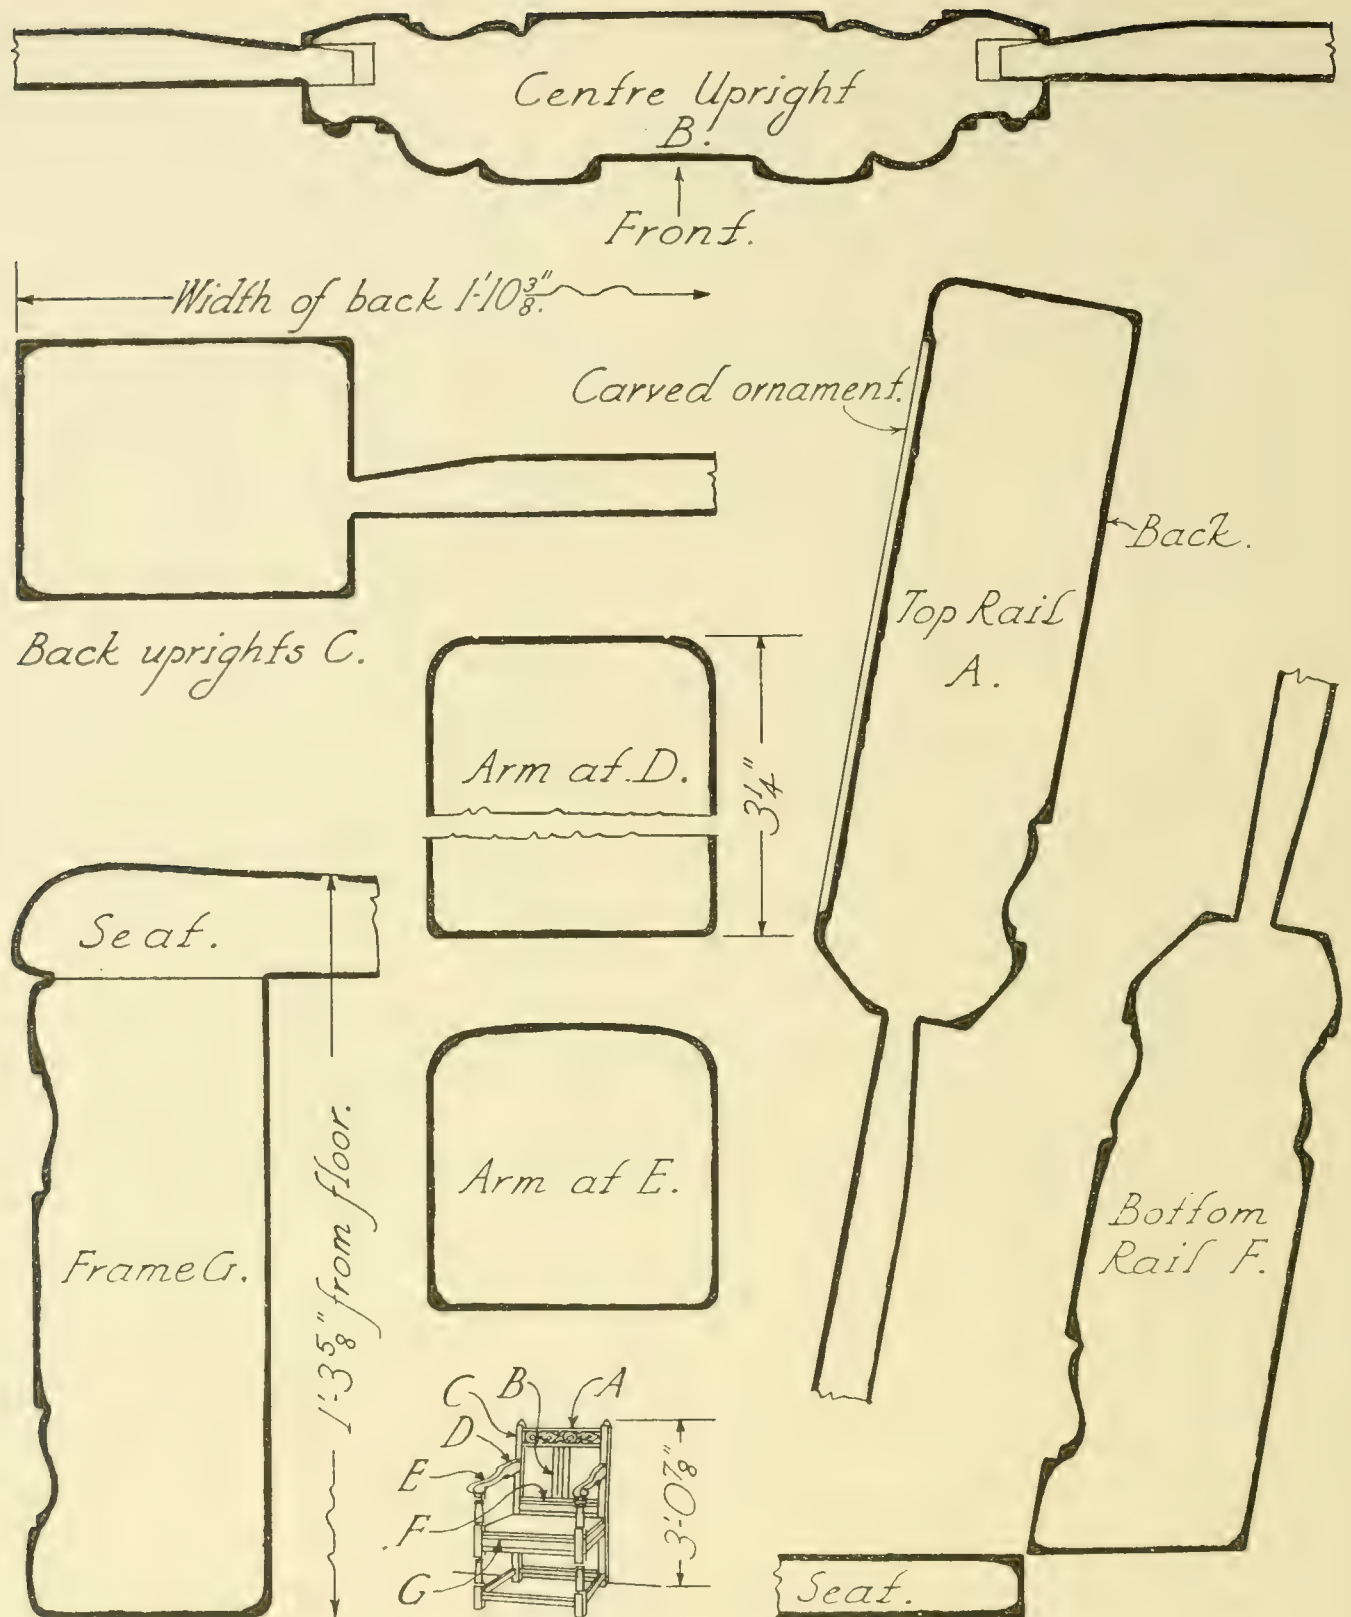 Centre Upright
B.
Front.
Width of back 1'-10 3/8"
Carved ornament.
Back.
Top Rail
A.
Back uprights C.
Arm at D.
3 1/4"
Seat.
Arm at E.
Frame G.
1'-3 5/8" from floor.
Bottom
Rail F.
C B A
D
E
F
G
3'-0 7/8"
Seat.